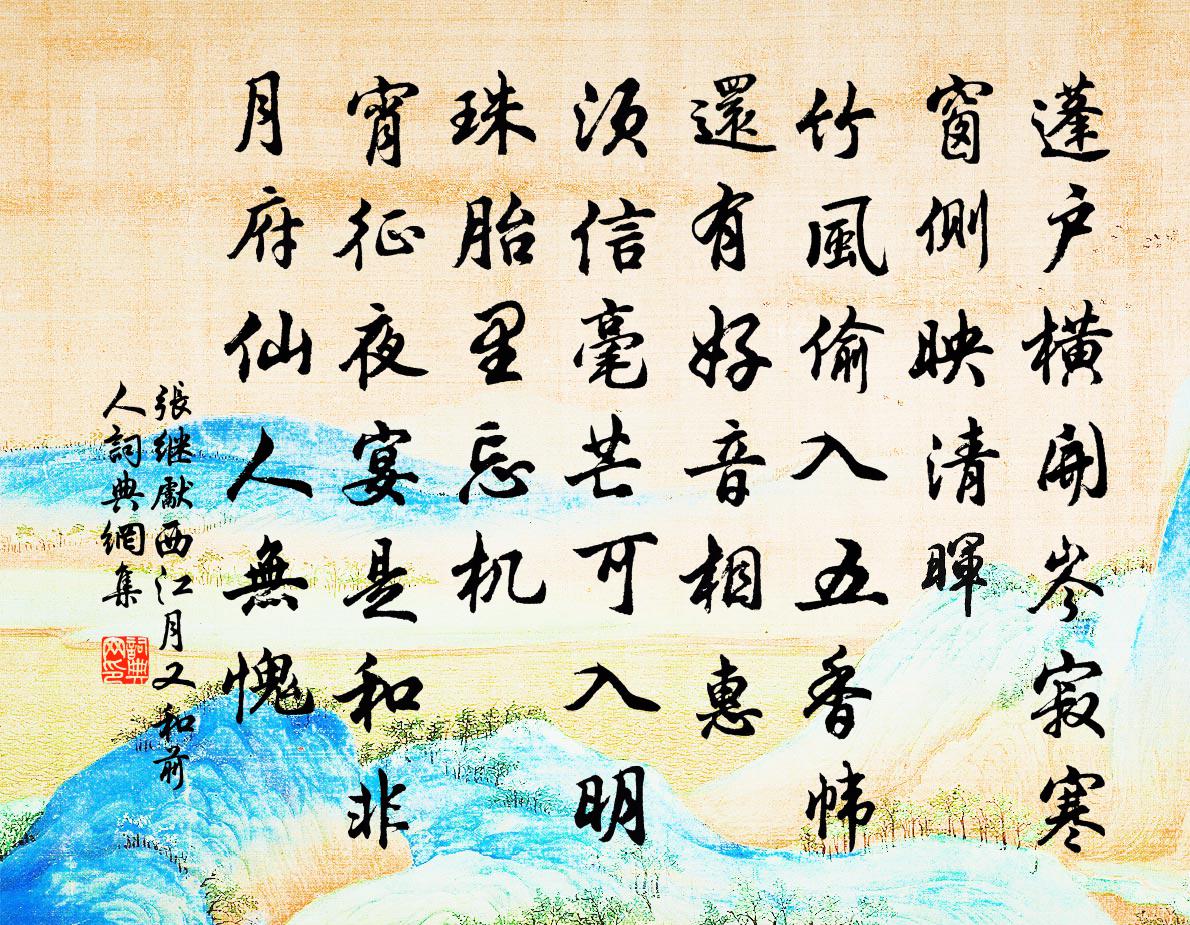 蓬户橫開岑寂寒
窗側映清暉
竹風偷入五香幃
還有好音相惠
須信毫芒可入明
珠胎里忘机
宵征夜宴是和非
月府仙人無愧
張继獻西江月又和前
人詞典網集
詞典网印